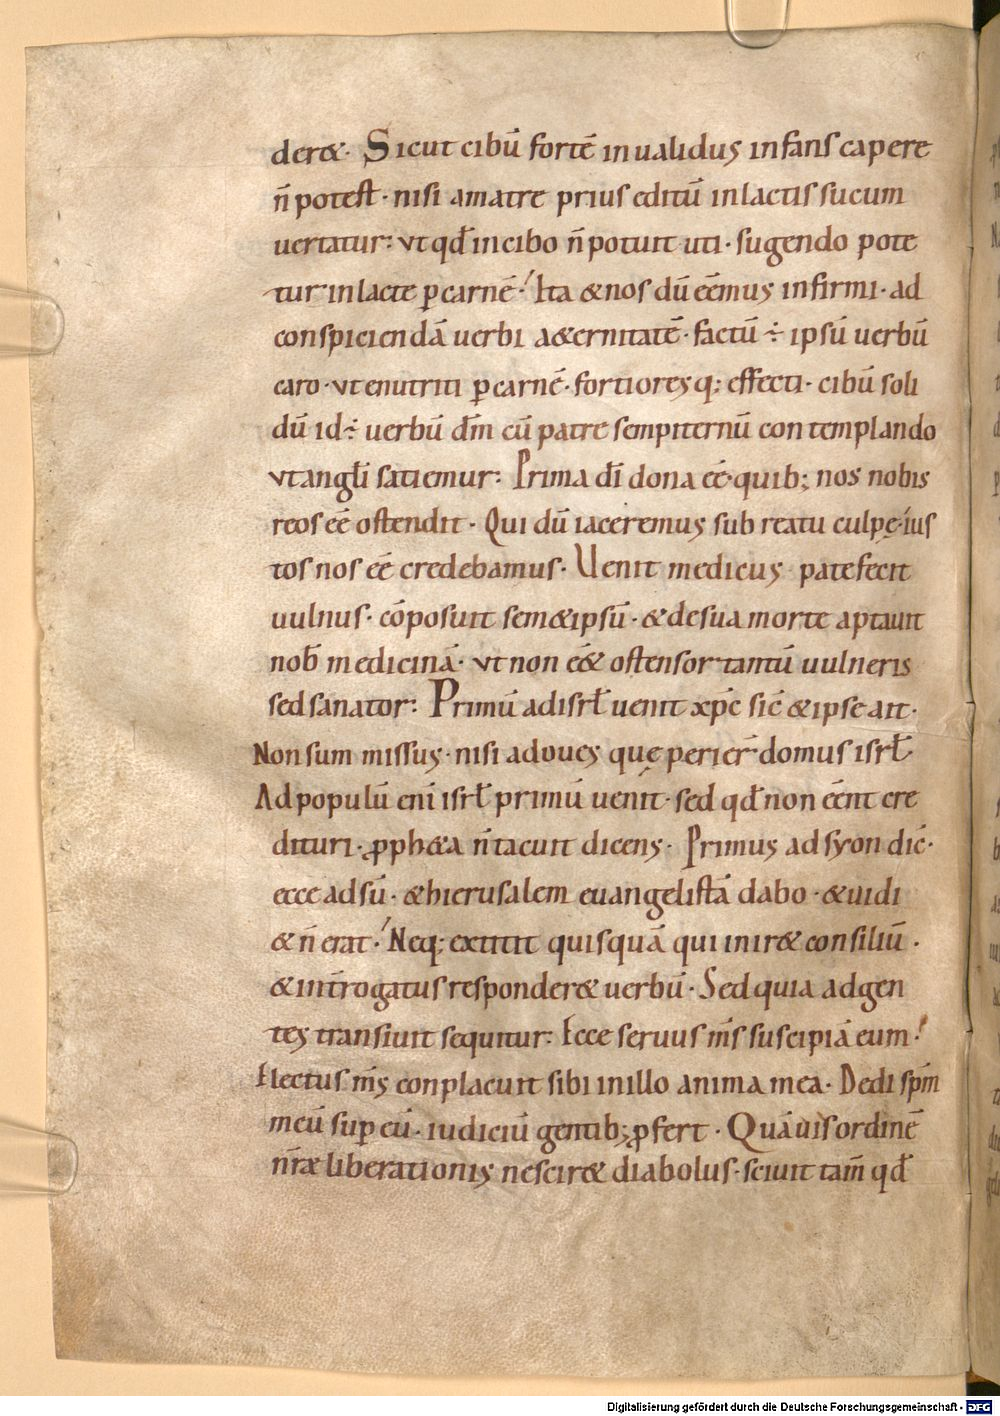 der&. Sicut cibū fortē inualidus infans capere
n̄ potest. nisi amatre prius editū inlactis sucum
uertatur: vt qd̄ incibo n̄ potuit uti. sugendo pote
tur inlacte ꝑcarnē. Ita & nos dū eēmus infirmi. ad
conspiciendā uerbi a&ernitatē. factū ÷ ipsū uerbū
caro. vt enutriti ꝑcarnē. fortioresq; effecti. cibū soli
dū id÷ uerbū dm̄ cū patre sempiternū contemplando
vt angłi satiemur: Prima dı̄ dona eē. quib; nos nobis
reos eē ostendit. Qui dū iaceremus sub reatu culpę. ius
tos nos eē credebamus. Uenit medicus patefecit
uulnus. cōposuit sem&ipsū. & desua morte aptauit
nob̄ medicinā. vt non eē& ostensor tantū uulneris
sed sanator: Primū adisrł uenit xp̄c sic̄ & ipse ait.
Non sum missus. nisi adoues quę perier̄ domus isrł
Ad populū enī isrł primū uenit. sed qd̄ non eēnt cre
dituri. ꝓph&a n̄ tacuit dicens. Primus ad syon dic̄.
ecce adsū. & hierusalem euangelistā dabo. & uidi
& n̄ erat. Neq; extitit quisquā qui inir& consiliū.
& int̄rogatus responder& uerbū. Sed quia adgen
tes transiuit sequitur: Ecce seruus m̄s suscipiā eum!
Electus m̄s conplacuit sibi inillo anima mea. Dedi spm̄
meū suꝑ eū. iudiciū gentib; ꝓfert. Quāuis ordinē
nr̄æ liberationis nescir& diabolus. sciuit tam̄ qd̄
Digitalisierung gefördert durch die Deutsche Forschungsgemeinschaft - DFG